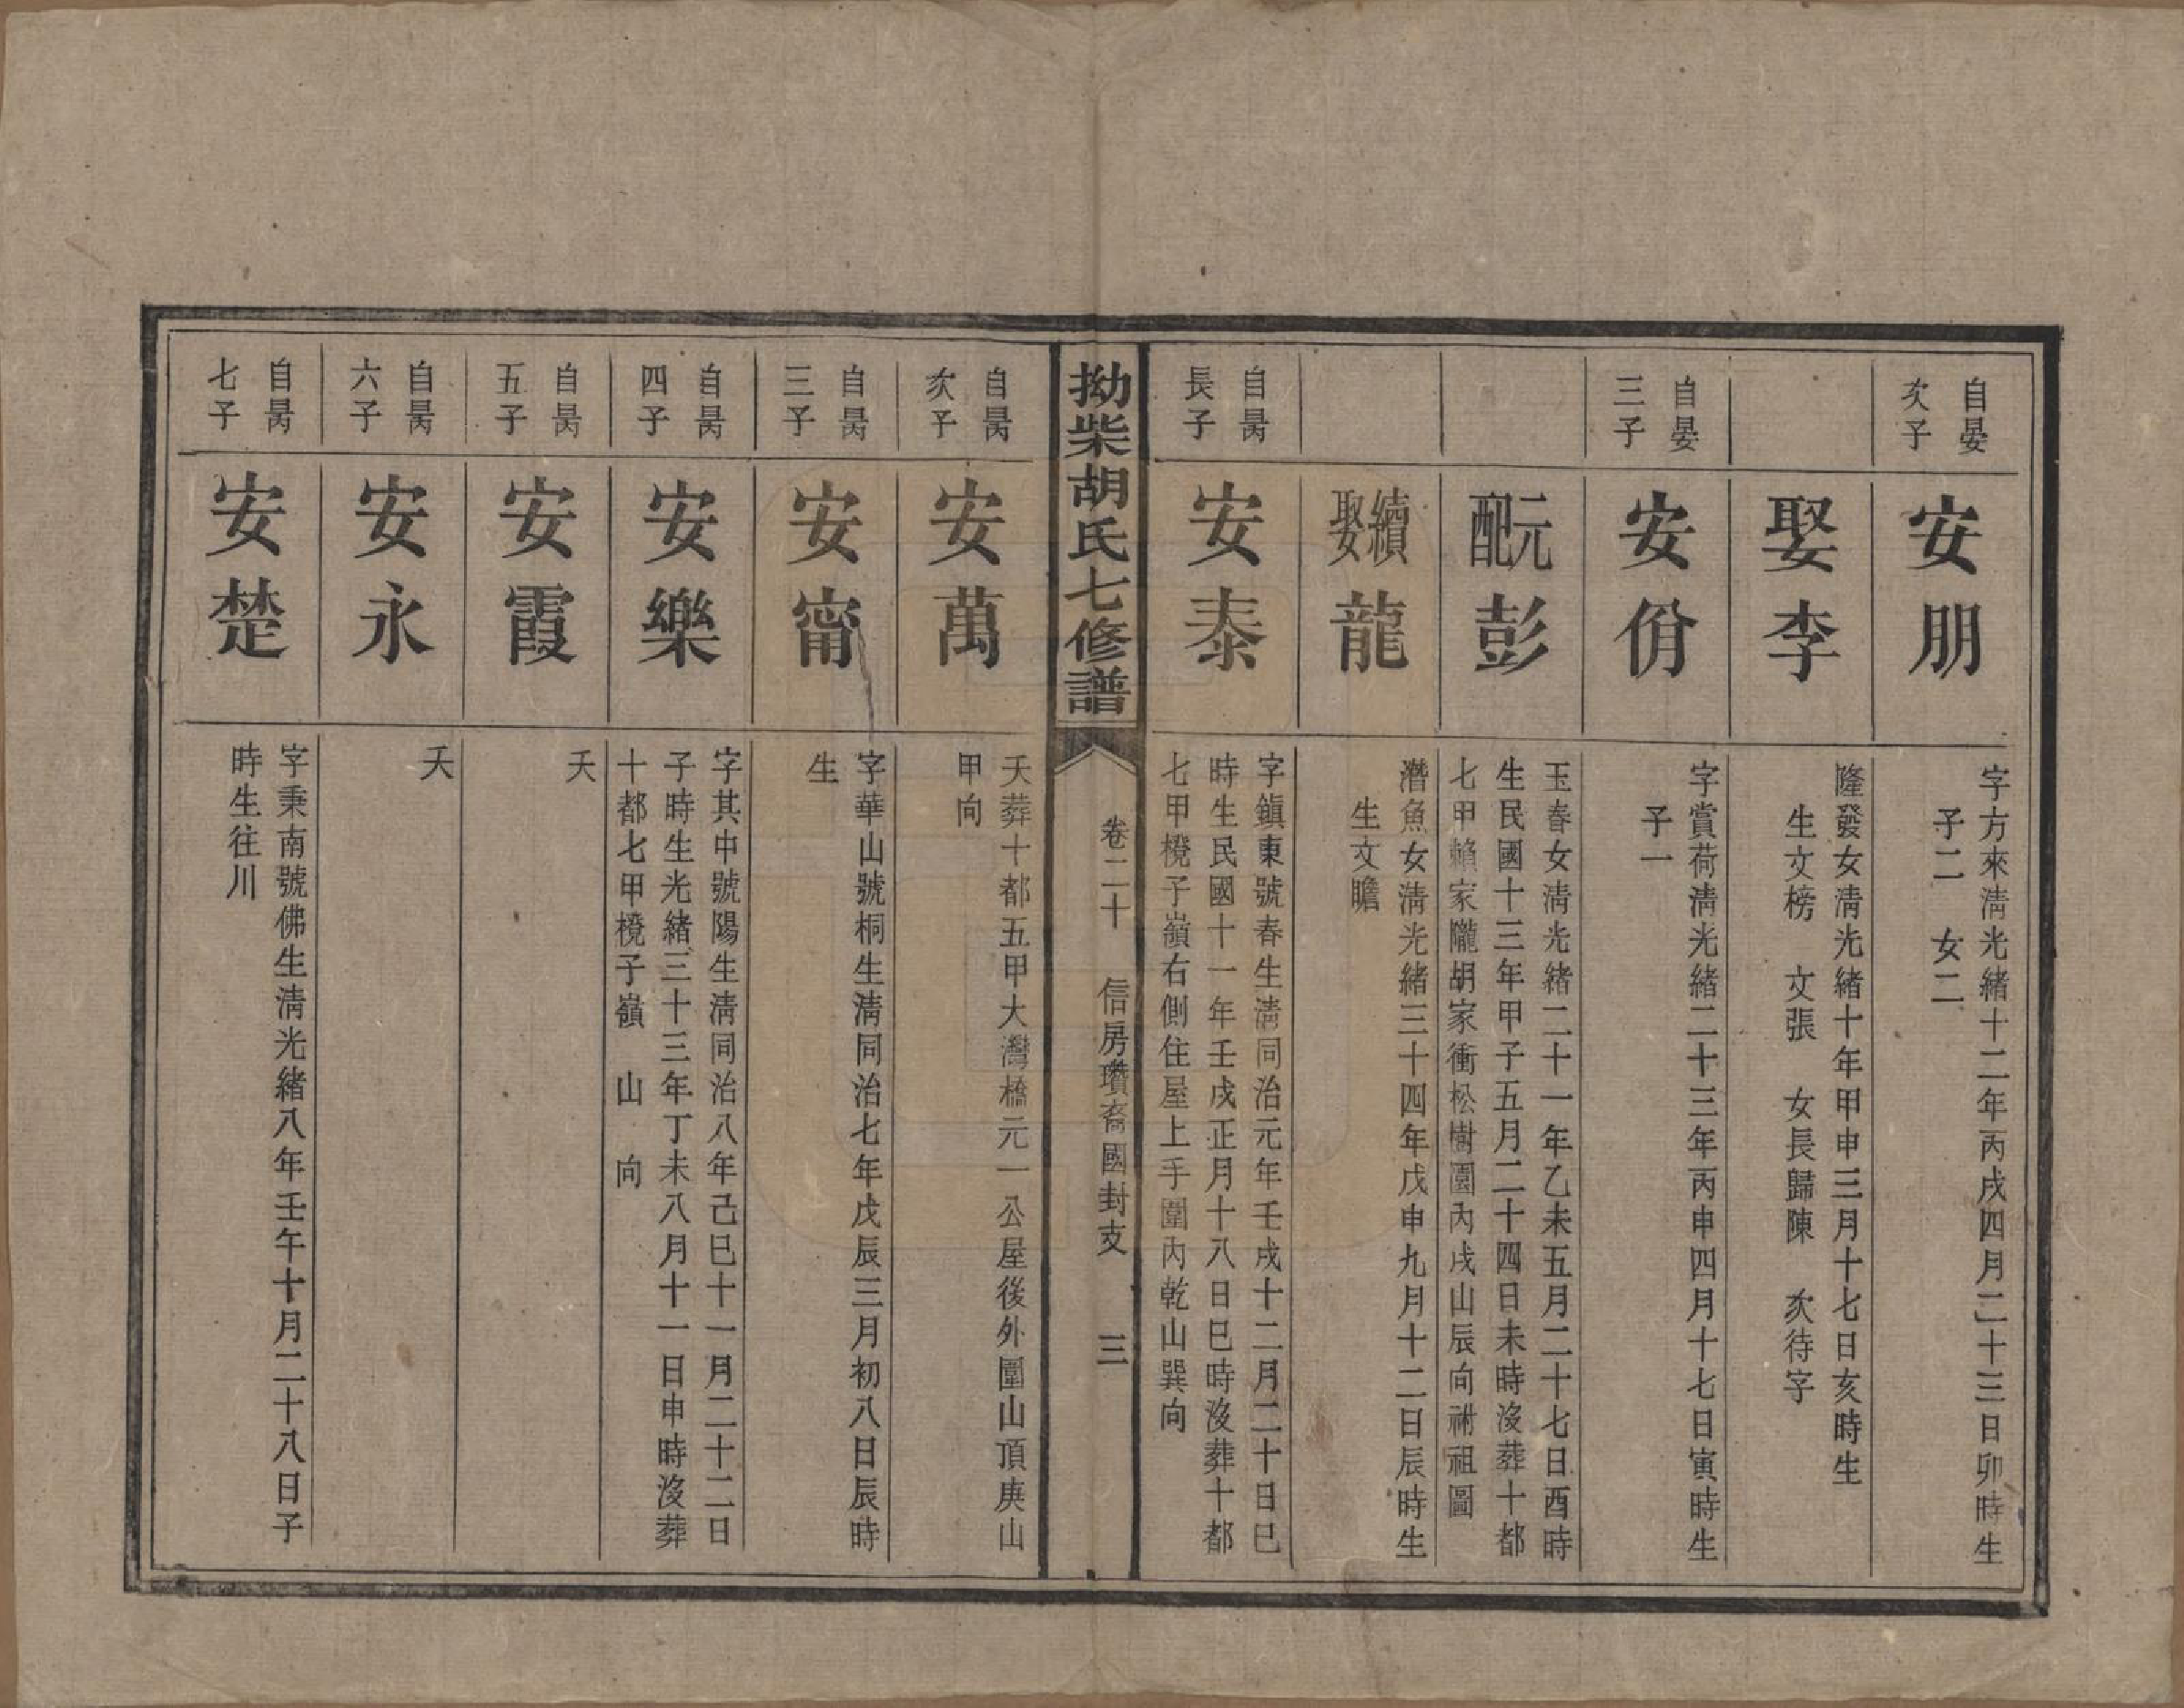 自晏
次子
安朋
字方來淸光緒十二年丙戌四月二十三日卯時生
子二 女二
娶李
隆發女淸光緒十年甲申三月十七日亥時生
生文榜 文張 女長歸陳 次待字
自晏
三子
安佾
字賞荷淸光緒二十三年丙申四月十七日寅時生
子一
元配
彭
玉春女淸光緒二十一年乙未五月二十七日酉時
生民國十三年甲子五月二十四日未時沒葬十都
七甲賴家隴胡家衝松樹園內戌山辰向祔祖圖
續娶
龍
潛魚女淸光緒三十四年戊申九月十二日辰時生
生文瞻
自昺
長子
安泰
字鎭東號春生淸同治元年壬戌十二月二十日巳
時生民國十一年壬戌正月十八日巳時沒葬十都
七甲櫈子嶺右側住屋上手圍內乾山巽向
拗柴胡氏七修譜
卷二十 信房瓚裔國封支 三
自昺
次子
安萬
夭葬十都五甲大灣橋元一公屋後外圍山頂庚山
甲向
自昺
三子
安甯
字華山號桐生淸同治七年戊辰三月初八日辰時
生
自昺
四子
安樂
字其中號陽生淸同治八年己巳十一月二十二日
子時生光緒三十三年丁未八月十一日申時沒葬
十都七甲櫈子嶺 山 向
自昺
五子
安霞
夭
自昺
六子
安永
夭
自昺
七子
安楚
字秉南號佛生淸光緒八年壬午十月二十八日子
時生往川